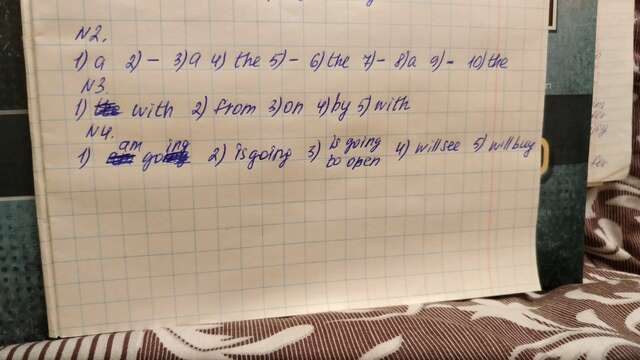 N2.
1) a 2) – 3) a 4) the 5) – 6) the 7) – 8) a 9) – 10) the
N3.
1) with 2) from 3) on 4) by 5) with
N4.
1) am going 2) is going 3) is going to open 4) will see 5) will buy